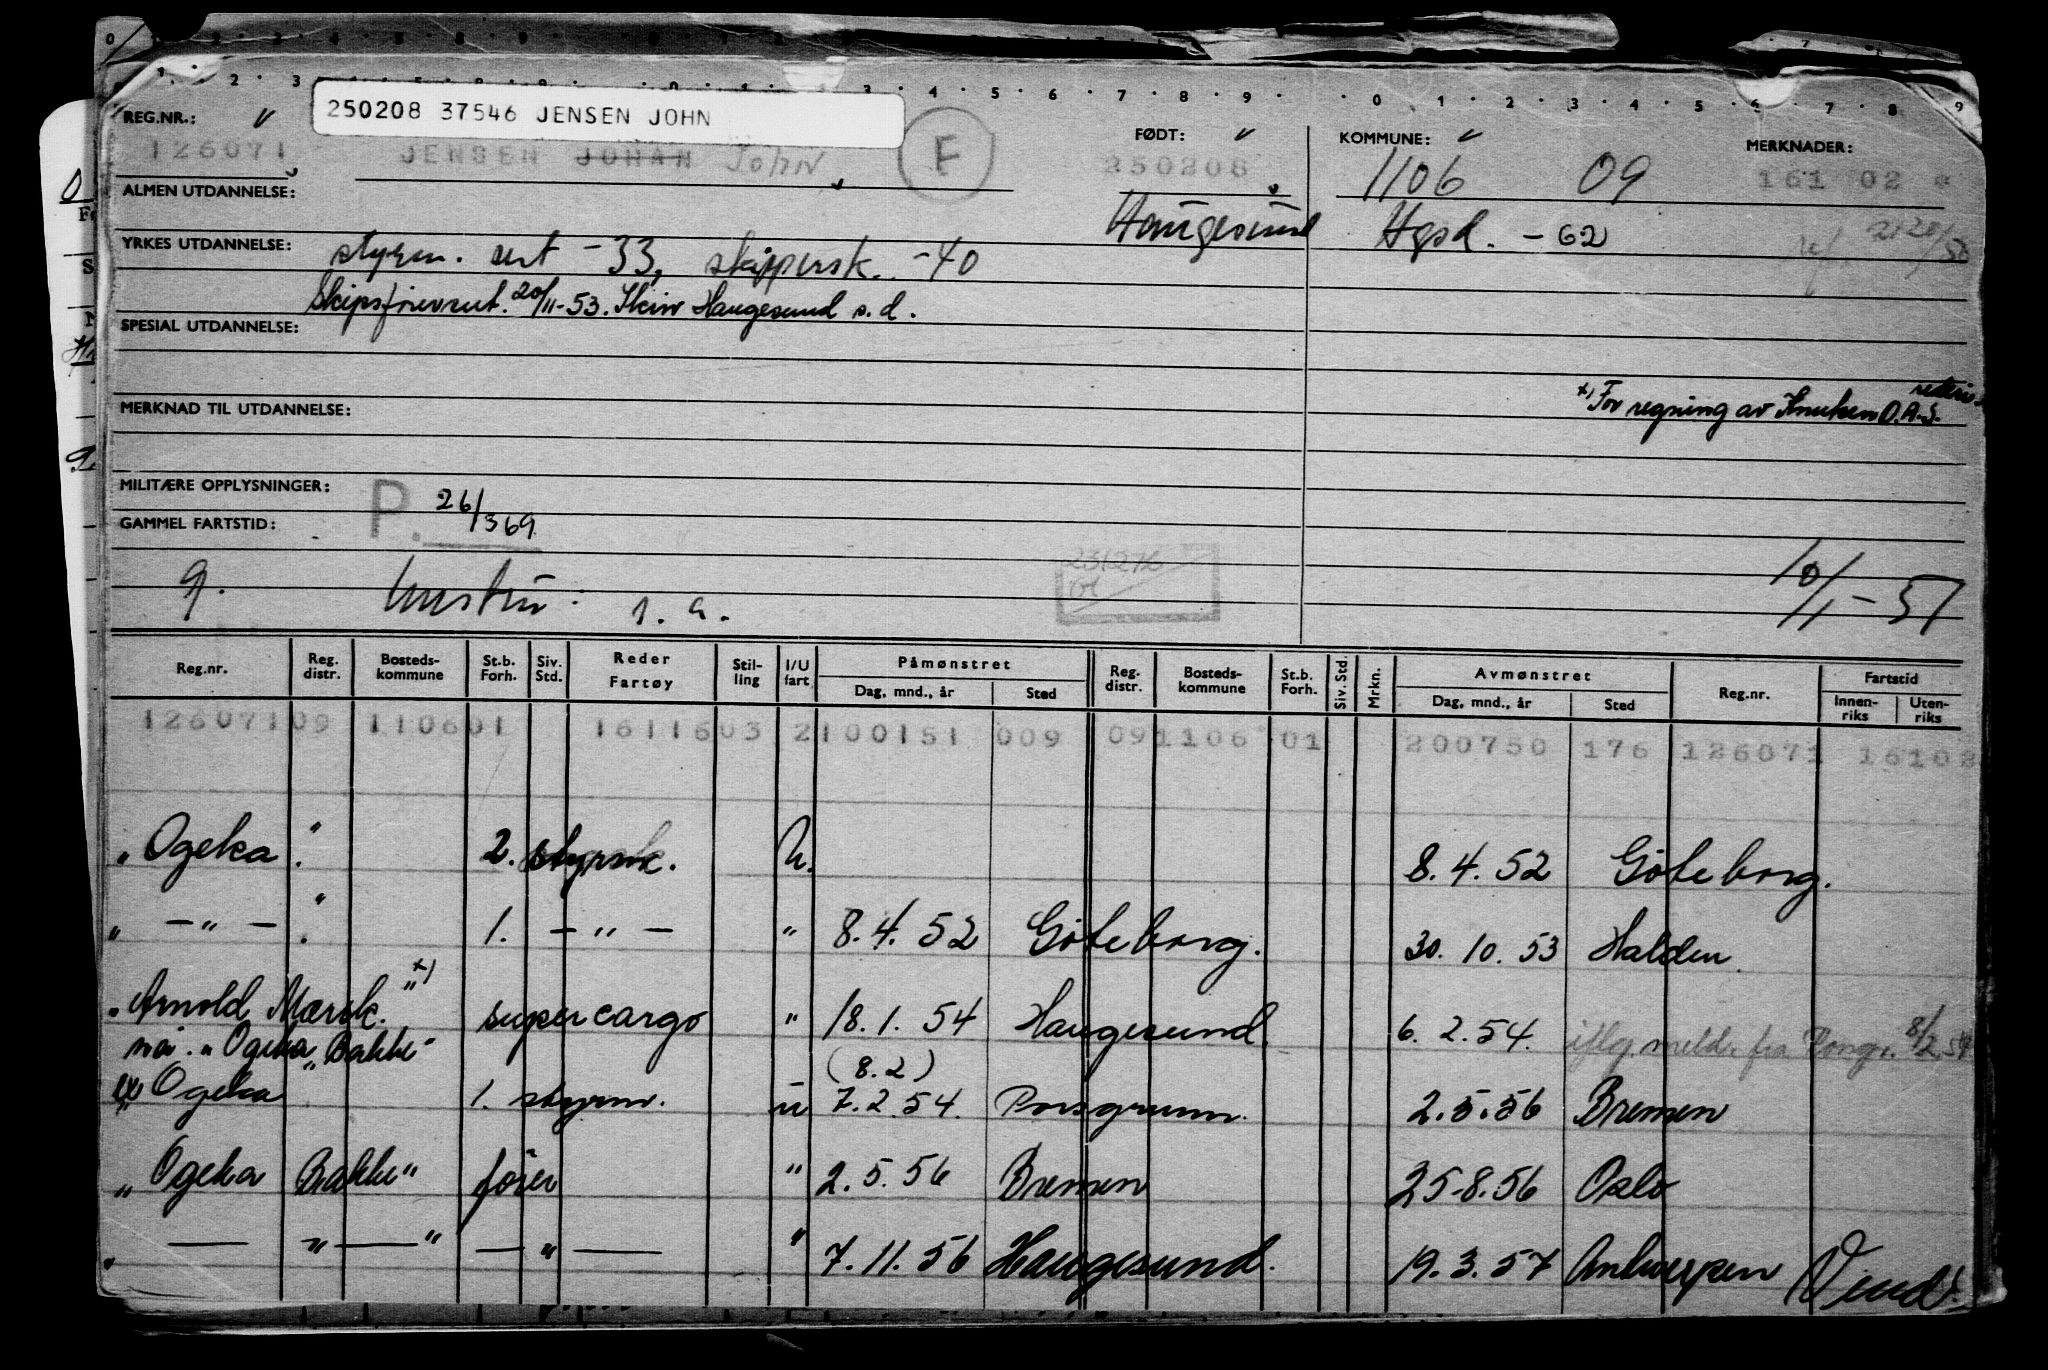 250208 37546 JENSEN JOHN
REG.NR.: FØDT: KOMMUNE: MERKNADER:
126071 JENSEN JOHAN John F 250208 1106 09 161 02 *
ALMEN UTDANNELSE:
Haugesund Hgsd. - 62
YRKES UTDANNELSE: styrm. sert -33, skippersk. -40
Skipsförersert. 20/11-53. Skien Haugesund s.d.
SPESIAL UTDANNELSE:
x) For regning av Knutsen O.A.S.
MERKNAD TIL UTDANNELSE:
MILITÆRE OPPLYSNINGER: P. 26/3 69
GAMMEL FARTSTID:
9. 1. a. 10/1-51
Reg.nr. Reg. distr. Bosteds-kommune St.b. Forh. Siv. Std. Reder Fartøy Stil-ling I/U fart Påmønstret Dag, mnd., år Sted Reg. distr. Bosteds-kommune St.b. Forh. Siv. Std. Mrkn. Avmønstret Dag, mnd., år Sted Reg.nr. Fartstid Innen-riks Uten-riks
126071 09 1106 01 161 16 03 2 100151 009 09 1106 01 200750 176 126071 16102
" Ogeka " 2. styrm. U. 8.4.52 Göteborg.
" — " — " 1. — " — " 8.4.52 Göteborg. 30.10.53 Halden.
" Arnold Mærsk." x) supercargo " 18.1.54 Haugesund. 6.2.54. iflg. meld. fra Porsgr. 8/2.54
nå. " Ogeka Bakke" (8.2)
ex " Ogeka 1. styrm. u 7.2.54. Porsgrunn. 2.5.56 Bremen
" Ogeka Bakke" förer " 2.5.56 Bremen 25-8.56 Oslo
" — " — " — " — " 7.11.56 Haugesund. 19.3.57 Antwerpen Vend!